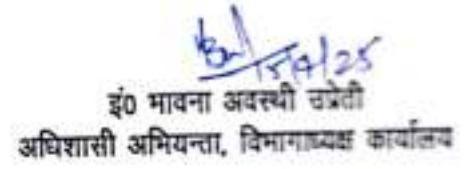 15/9/25
इं0 भावना अवस्थी उप्रेती
अधिशासी अभियन्ता, विभागाध्यक्ष कार्यालय